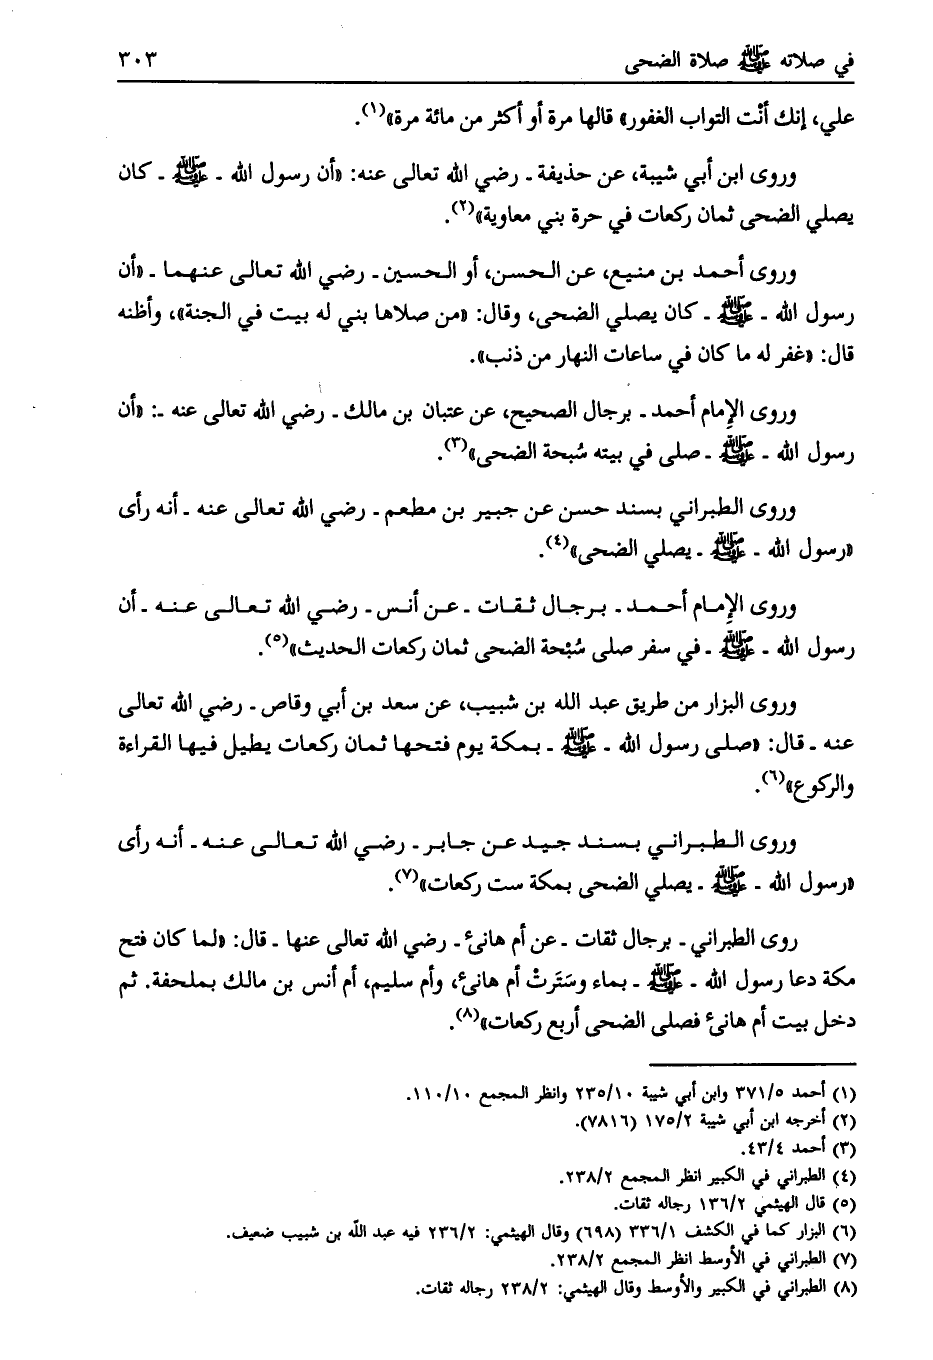 في صلاته ﷺ صلاة الضحى ٣٠٣
علي، إنك أنْت التواب الغفور» قالها مرة أو أكثر من مائة مرة»(١).
وروى ابن أبي شيبة، عن حذيفة ـ رضي الله تعالى عنه: «أن رسول الله ـ ﷺ ـ كان
يصلي الضحى ثمان ركعات في حرة بني معاوية»(٢).
وروى أحمد بن منيع، عن الحسن، أو الحسين ـ رضي الله تعالى عنهما ـ «أن
رسول الله ـ ﷺ ـ كان يصلي الضحى، وقال: «من صلاها بني له بيت في الجنة»، وأظنه
قال: «غفر له ما كان في ساعات النهار من ذنب».
وروى الإمام أحمد ـ برجال الصحيح، عن عتبان بن مالك ـ رضي الله تعالى عنه ـ: «أن
رسول الله ـ ﷺ ـ صلى في بيته سُبحة الضحى»(٣).
وروى الطبراني بسند حسن عن جبير بن مطعم ـ رضي الله تعالى عنه ـ أنه رأى
«رسول الله ـ ﷺ ـ يصلي الضحى»(٤).
وروى الإمام أحمد ـ برجال ثقات ـ عن أنس ـ رضي الله تعالى عنه ـ أن
رسول الله ـ ﷺ ـ في سفر صلى سُبْحة الضحى ثمان ركعات الحديث»(٥).
وروى البزار من طريق عبد الله بن شبيب، عن سعد بن أبي وقاص ـ رضي الله تعالى
عنه ـ قال: «صلى رسول الله ـ ﷺ ـ بمكة يوم فتحها ثمان ركعات يطيل فيها القراءة
والركوع»(٦).
وروى الطبراني بسند جيد عن جابر ـ رضي الله تعالى عنه ـ أنه رأى
«رسول الله ـ ﷺ ـ يصلي الضحى بمكة ست ركعات»(٧).
روى الطبراني ـ برجال ثقات ـ عن أم هانئ ـ رضي الله تعالى عنها ـ قال: «لما كان فتح
مكة دعا رسول الله ـ ﷺ ـ بماء وسَتَرتْ أم هانئ، وأم سليم، أم أنس بن مالك بملحفة. ثم
دخل بيت أم هانئ فصلى الضحى أربع ركعات»(٨).
(١) أحمد ٣٧١/٥ وابن أبي شيبة ٢٣٥/١٠ وانظر المجمع ١١٠/١٠.
(٢) أخرجه ابن أبي شيبة ١٧٥/٢ (٧٨١٦).
(٣) أحمد ٤٣/٤.
(٤) الطبراني في الكبير انظر المجمع ٢٣٨/٢.
(٥) قال الهيثمي ١٣٦/٢ رجاله ثقات.
(٦) البزار كما في الكشف ٣٣٦/١ (٦٩٨) وقال الهيثمي: ٢٣٦/٢ فيه عبد الله بن شبيب ضعيف.
(٧) الطبراني في الأوسط انظر المجمع ٢٣٨/٢.
(٨) الطبراني في الكبير والأوسط وقال الهيثمي: ٢٣٨/٢ رجاله ثقات.